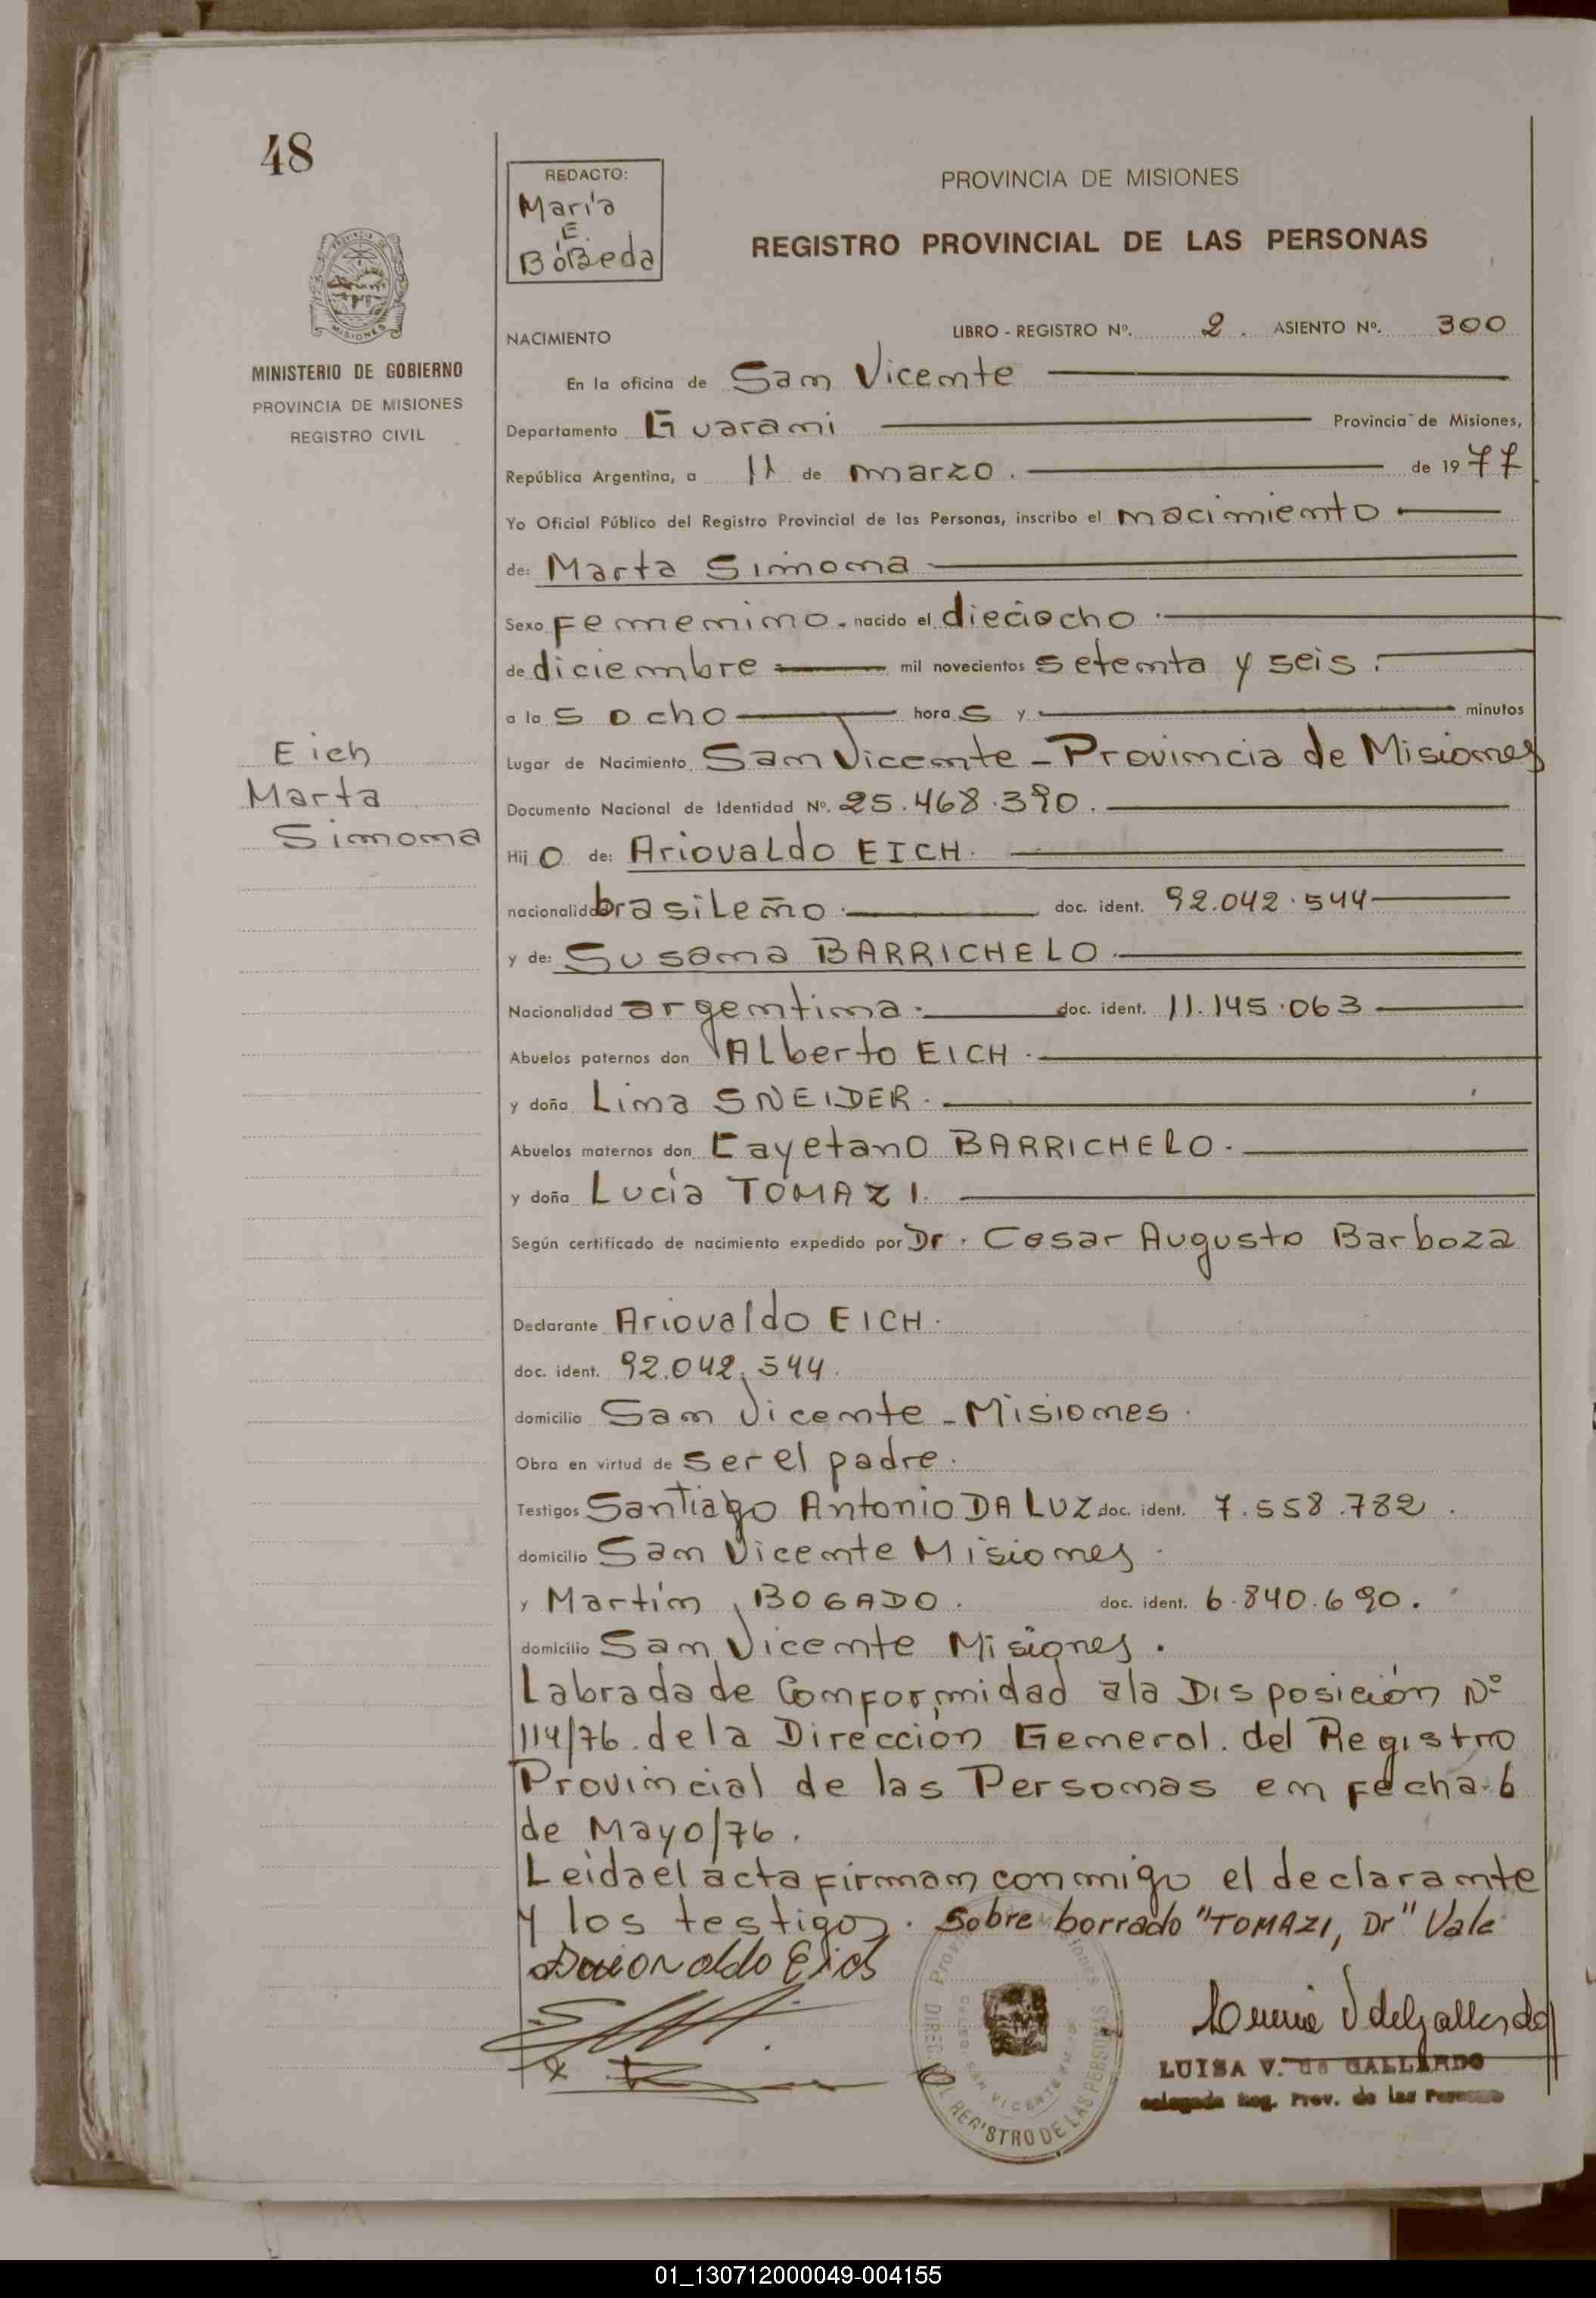 48
REDACTO:
María
E.
BóBeda
PROVINCIA DE MISIONES
REGISTRO PROVINCIAL DE LAS PERSONAS
MISIONES
MINISTERIO DE GOBIERNO
PROVINCIA DE MISIONES
REGISTRO CIVIL
NACIMIENTO LIBRO - REGISTRO Nº. 2. ASIENTO Nº. 300
En la oficina de San Vicente
Departamento Guarani Provincia de Misiones,
República Argentina, a 11 de marzo. de 1977
Yo Oficial Público del Registro Provincial de las Personas, inscribo el nacimiento
de: Marta Simona
Sexo femenino. nacido el dieciocho.
de diciembre mil novecientos setenta y seis.
a las ocho horas y minutos
Lugar de Nacimiento San Vicente - Provincia de Misiones
Documento Nacional de Identidad Nº. 25.468.390.
Eich
Marta
Simona
Hijo de: Ariovaldo EICH.
nacionalidad brasileño. doc. ident. 92.042.544
y de: Susana BARRICHELO.
Nacionalidad argentina. doc. ident. 11.145.063
Abuelos paternos don Alberto EICH.
y doña Lina SNEIDER.
Abuelos maternos don Cayetano BARRICHELO.
y doña Lucía TOMAZI.
Según certificado de nacimiento expedido por Dr. Cesar Augusto Barboza
Declarante Ariovaldo EICH.
doc. ident. 92.042.544.
domicilio San Vicente - Misiones.
Obra en virtud de ser el padre.
Testigos Santiago Antonio DA LUZ doc. ident. 7.558.782.
domicilio San Vicente Misiones.
y Martín BOGADO. doc. ident. 6.840.690.
domicilio San Vicente Misiones.
Labrada de Conformidad a la Disposición Nº
114/76 de la Dirección General del Registro
Provincial de las Personas en fecha 6
de Mayo/76.
Leida el acta firman conmigo el declarante
y los testigos. Sobre borrado "TOMAZI, Dr" Vale
Ariovaldo Eich
DIREC. DEL REGISTRO DE LAS PERSONAS
SAN VICENTE
LUISA V. de GALLARDO
Delegada Reg. Prov. de las Personas
01_130712000049-004155